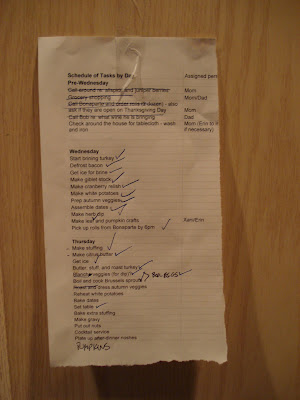 Schedule of Tasks by Day Assigned per
Pre-Wednesday
Call around re: and juniper berries Mom
Grocery shopping Mom/Dad
Call Bonaparte and order rolls - also
ask if they are open on Thanksgiving Day Mom
Call Bob re: what wine he is bringing Dad
Check around the house for tablecloth - wash Mom (Erin to
and iron if necessary)
Wednesday
Start brining turkey ✓
Defrost bacon ✓
Get ice for brine ✓
Make giblet stock ✓
Make cranberry relish ✓
Make white potatoes ✓
Prep autumn veggies ✓
Assemble dates ✓
Make herb
Make leaf and pumpkin crafts ✓ /Erin
Pick up rolls from Bonaparte by 6pm ✓
Thursday
- Make stuffing ✓
- Make citrus butter ✓
Get ice ✓
Butter, stuff, and roast turkey ✓
veggies (for dip) ✓
Boil and cook Brussels sprouts
and dress autumn veggies
Reheat white potatoes
Bake dates
Set table ✓
Bake extra stuffing
Make gravy
Put out nuts
Cocktail service
Plate up after-dinner
NAPKINS